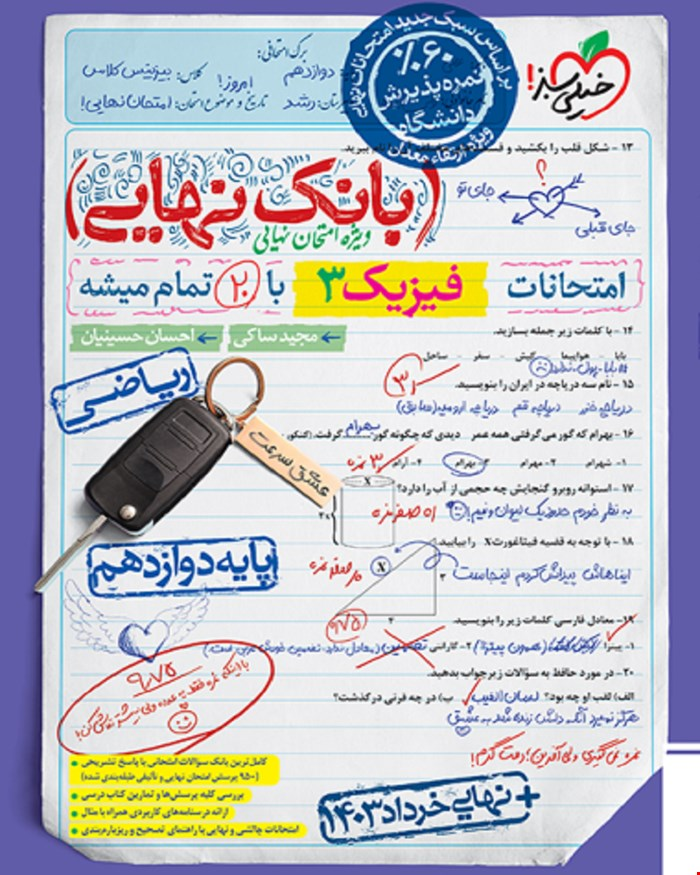 خیلی سبز!
براساس سبک جدید امتحانات نهایی
%۶۰
نمره پذیرش
دانشگاه
ویژه ارتقاء معدل
برگ امتحانی:
دوازدهم
کلاس: بیزنیس کلاس
امروز!
رشد
تاریخ و موضوع امتحان: امتحان نهایی!
۱۳ - شکل قلب را بکشید و
ببرید.
؟
جای تو
جای قبلی
(بانک نهایی)
ویژه امتحان نهایی
امتحانات فیزیک ۳ با ۲۰ تمام میشه
مجید ساکی
احسان حسینیان
۱۴ - با کلمات زیر جمله بسازید.
بابا - هواپیما - کیش - سفر - ساحل
بابا پول ندارد
ریاضی
۱۵ - نام سه دریاچه در ایران را بنویسید.
دریاچه خزر دریاچه قم دریاچه ارومیه (سابق)
۱۶ - بهرام که گور می‌گرفتی همه عمر دیدی که چگونه گور بهرام گرفت. (کنکور
۱- شهرام ۲- مهرام ۳- بهرام ۴- آرام
عشق سرعت
۱۷ - استوانه روبرو گنجایش چه حجمی از آب را دارد؟
به نظر خودم حدود یک لیوان و نیم!
X
۱۸ - با توجه به قضیه فیثاغورث X را بیابید.
ایناهاش پیداش کردم اینجاست
X
۳
۴
پایه دوازدهم
۱۹- معادل فارسی کلمات زیر را بنویسید.
۹/۷۵
۱- پیتزا (همون پیتزا) ۲- گارانتی تضمین
۲۰ - در مورد حافظ به سؤالات زیر جواب بدهید.
الف) لقب او چه بود؟ لسان الغیب ب) در چه قرنی درگذشت؟
هرگز نمیرد آنکه دلش زنده شد به عشق
۹/۷۵
نمره نمی‌گیری ولی آفرین! دمت گرم!
کامل‌ترین بانک سوالات امتحانی با پاسخ تشریحی
(۹۵۰ پرسش امتحان نهایی و تألیفی طبقه‌بندی شده)
بررسی کلیه پرسش‌ها و تمارین کتاب درسی
ارائه درسنامه‌های کاربردی همراه با مثال
امتحانات چالشی و نهایی با راهنمای تصحیح و ریزبارم‌بندی
+ نهایی خرداد ۱۴۰۳